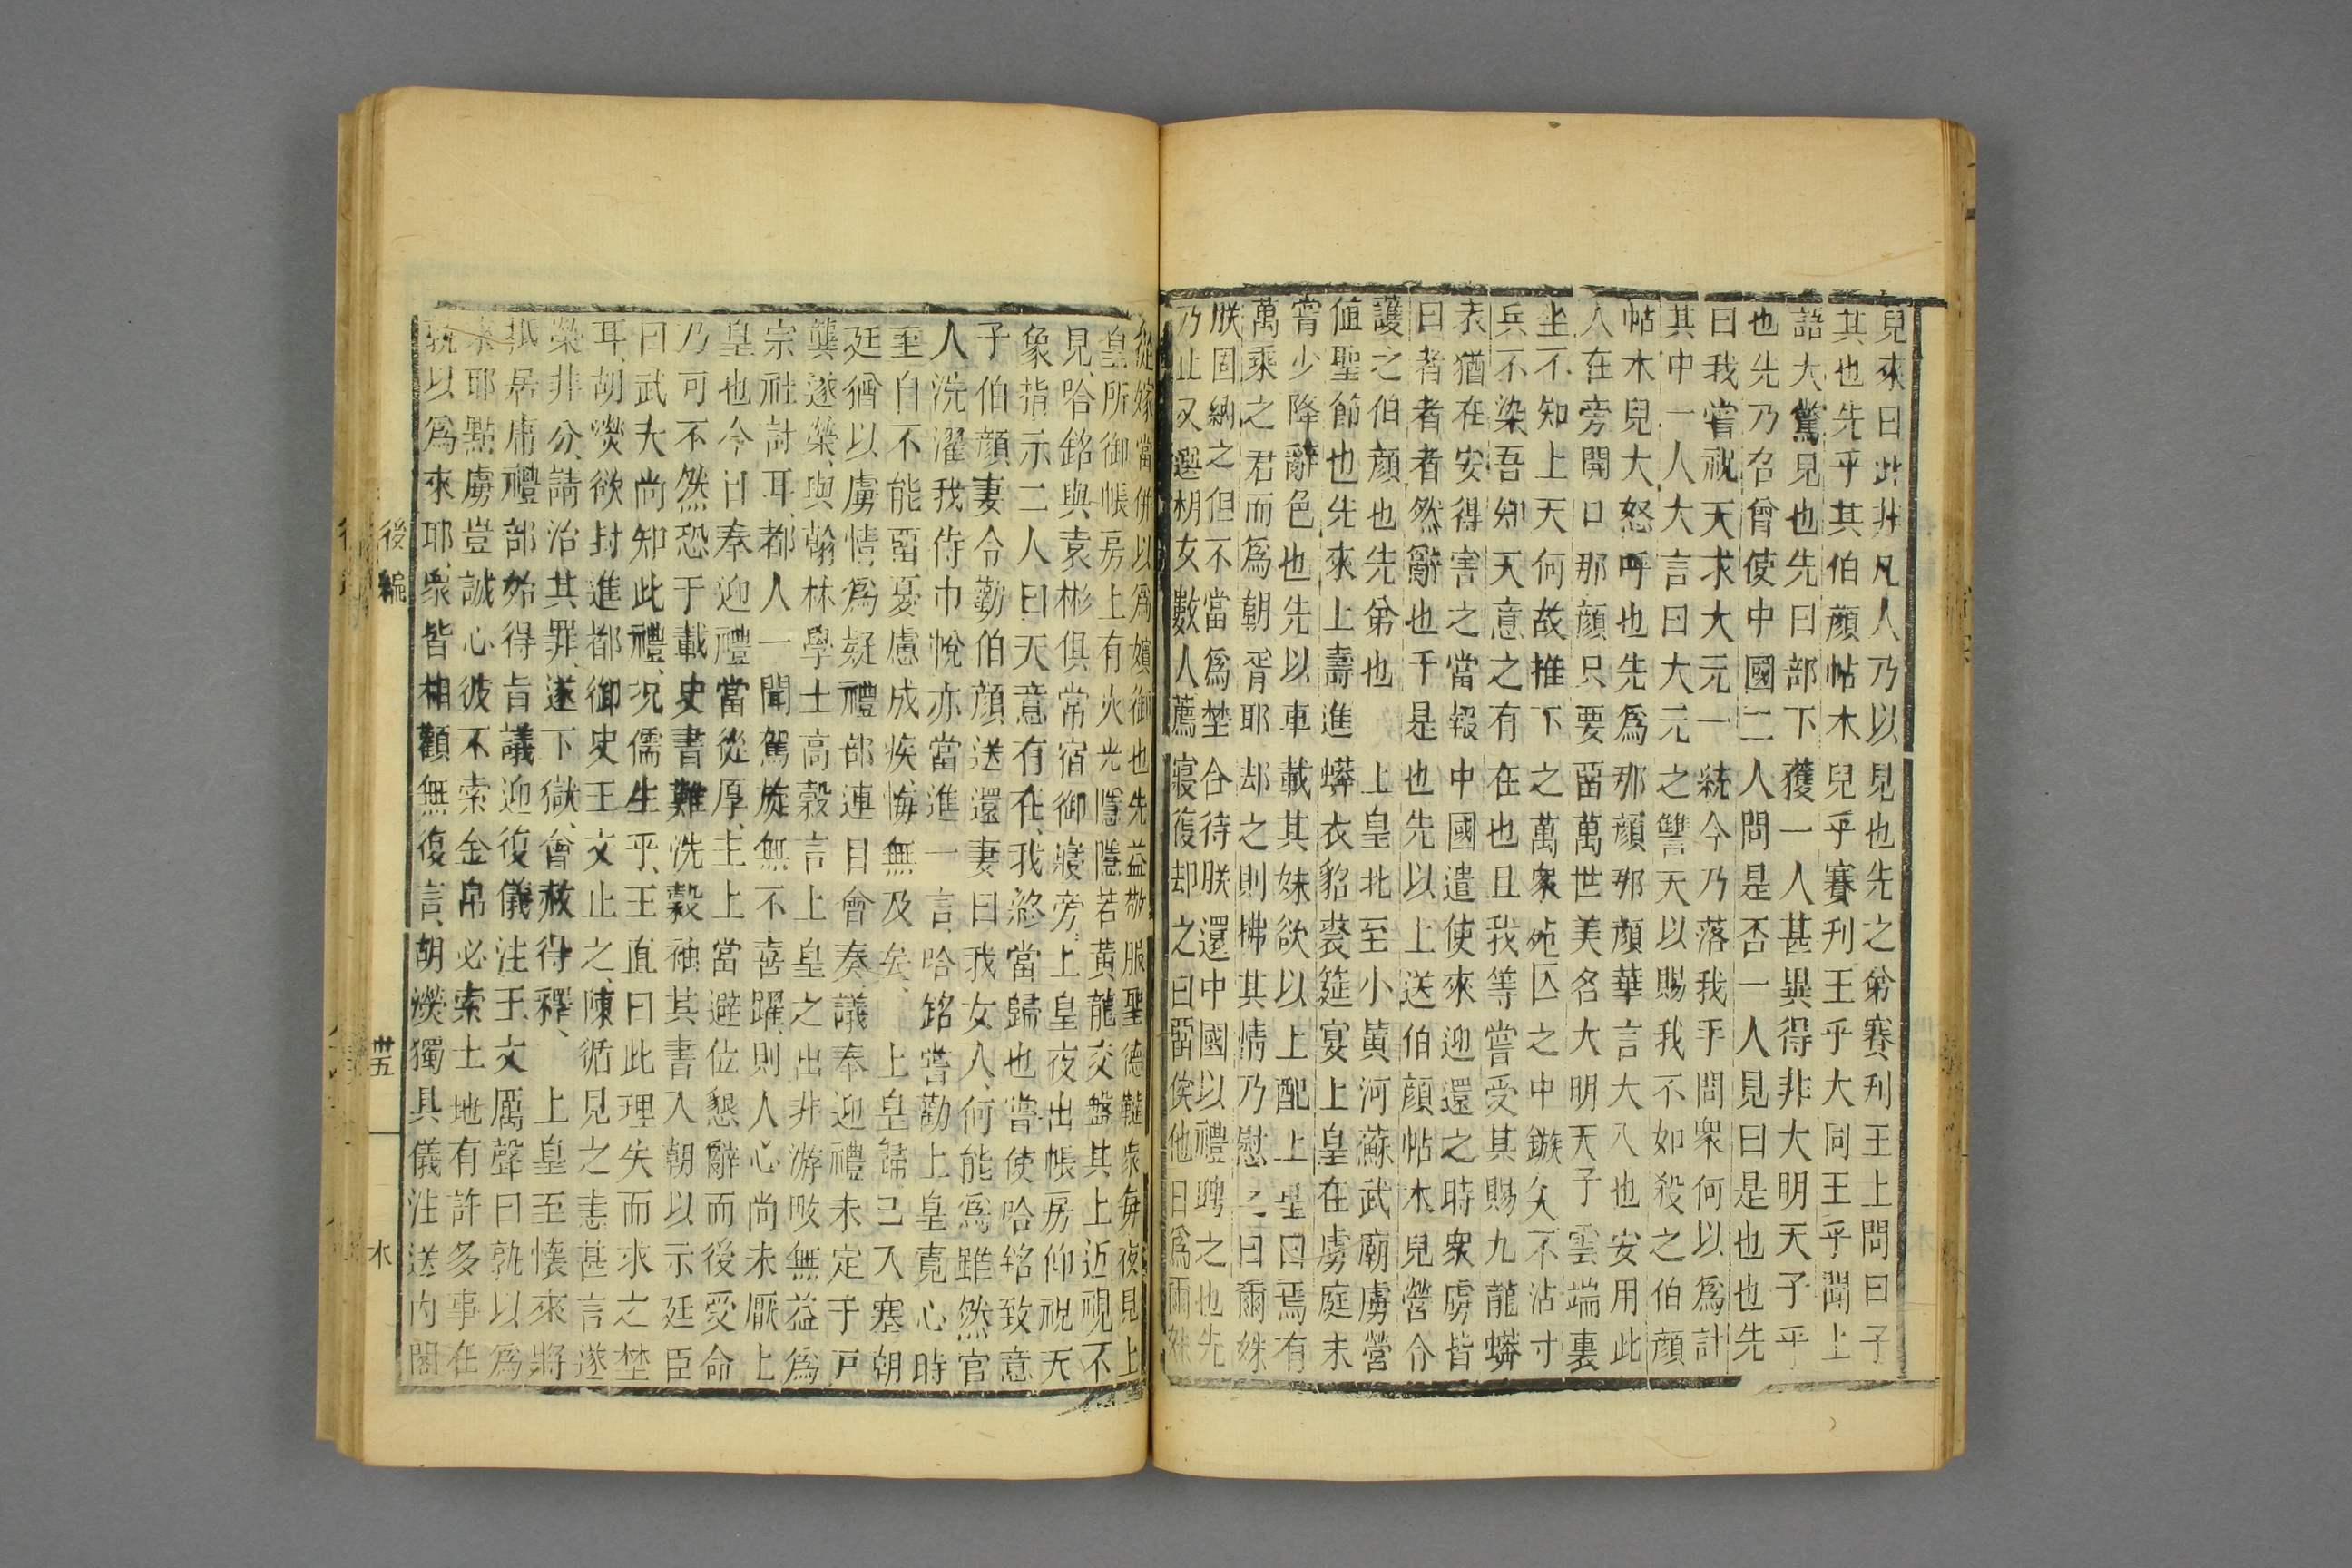 兒來曰此非凡人乃以見也先之弟賽刋王上問曰子
其也先乎其伯顔帖木兒乎賽刋王乎大同王乎聞上
語大驚見也先曰部下獲一人甚異得非大明天子乎
也先乃召曾使中國二人問是否一人見曰是也也先
曰我嘗祝天求大元一統今乃落我手問衆何以爲計
其中一人大言曰大元之讐天以賜我不如殺之伯顔
帖木兒大怒呼也先爲那顔那顔華言大人也安用此
人在旁開口那顔只要畱萬世美名大明天子雲端裏
坐不知上天何故推下之萬衆死亾之中鏃矢不沾寸
兵不染吾知天意之有在也且我等嘗受其賜九龍蟒
衣猶在安得害之當報中國遣使來迎還之時衆虜皆
曰者者者者然辭也于是也先以上送伯顔帖木兒營令
護之伯顔也先弟也　上皇北至小黃河蘇武廟虜營
值聖節也先來上壽進蟒衣貂裘筵宴上皇在虜庭未
嘗少降辭色也先以車載其妹欲以上配上皇曰焉有
萬乘之君而爲朝胥耶却之則拂其情乃慰之曰爾妹
朕固納之但不當爲埜合待朕還中國以禮聘之也先
乃止又選胡女數人薦寢復却之曰畱俟他日爲爾妹
從嫁當倂以爲嬪御也先益敬服聖德韃衆每夜見上
皇所御帳房上有火光隱隱若黃龍交盤其上近視不
見哈銘與袁彬俱常宿御寢旁上皇夜出帳房仰視天
象指示二人曰天意有在我終當歸也嘗使哈銘致意
子伯顔妻令勸伯顔送還妻曰我女人何能爲雖然官
人洗濯我侍巾帨亦當進一言哈銘嘗勸上皇寛心時
至自不能畱憂慮成疾悔無及矣　上皇歸已入塞朝
廷猶以虜情爲疑禮部連日會奏議奉迎禮未定于戸
龔遂榮與翰林學士高穀言上皇之出非游畋無益爲
宗社計耳都人一聞駕旋無不喜躍則人心尚未厭上
皇也今日奉迎禮當從厚主上當避位懇辭而後受命
乃可不然恐于載史書難洗穀袖其書入朝以示廷臣
曰武夫尚知此禮況儒生乎王直曰此理失而求之埜
耳胡濙欲封進都御史王文止之陳循見之恚甚言遂
榮非分請治其罪遂下獄會赦得釋　上皇至懷來將
抵居庸禮部始得旨議迎復儀注王文厲聲曰孰以爲
來耶黠虜豈誠心彼不索金帛必索土地有許多事在
孰以爲來耶衆皆相顧無復言胡濙獨具儀注送内閣
後編
卅五
水